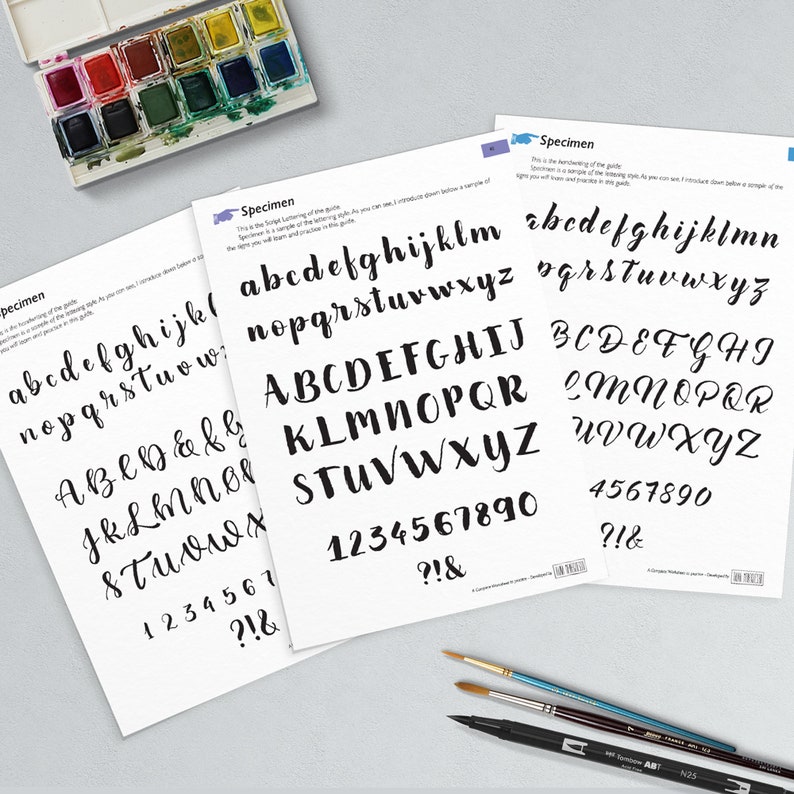 Specimen
This is the handwriting of the guide:
Specimen is a sample of the lettering style. As you can see, I introduce down below a sam
you will learn and practice in this guide.
abcdefghijkl
nopqrstuvwx
ABCDEFG
JKLMNO
STUVWX
1234567
?!&
42
Specimen
This is the Script Lettering of the guide:
Specimen is a sample of the lettering style. As you can see, I introduce down below a sample of
the signs you will learn and practice in this guide.
abcdefghijklm
nopqrstuvwxyz
ABCDEFGHIJ
KLMNOPQR
STUVWXYZ
1234567890
?!&
A Complete Worksheet to practice - Developed by
Specimen
This is the handwriting of the guide:
Specimen is a sample of the lettering style. As you can see, I introduce down below a sample of the
signs you will learn and practice in this guide.
abcdefghijklmn
opqrstuvwxyz
BCDEFGHIJ
LMNOPQR
UVWXYZ
4567890
?!&
A Complete Worksheet to practice - Developed by
FRANCE ART
Tombow ABT N25
Acid Free